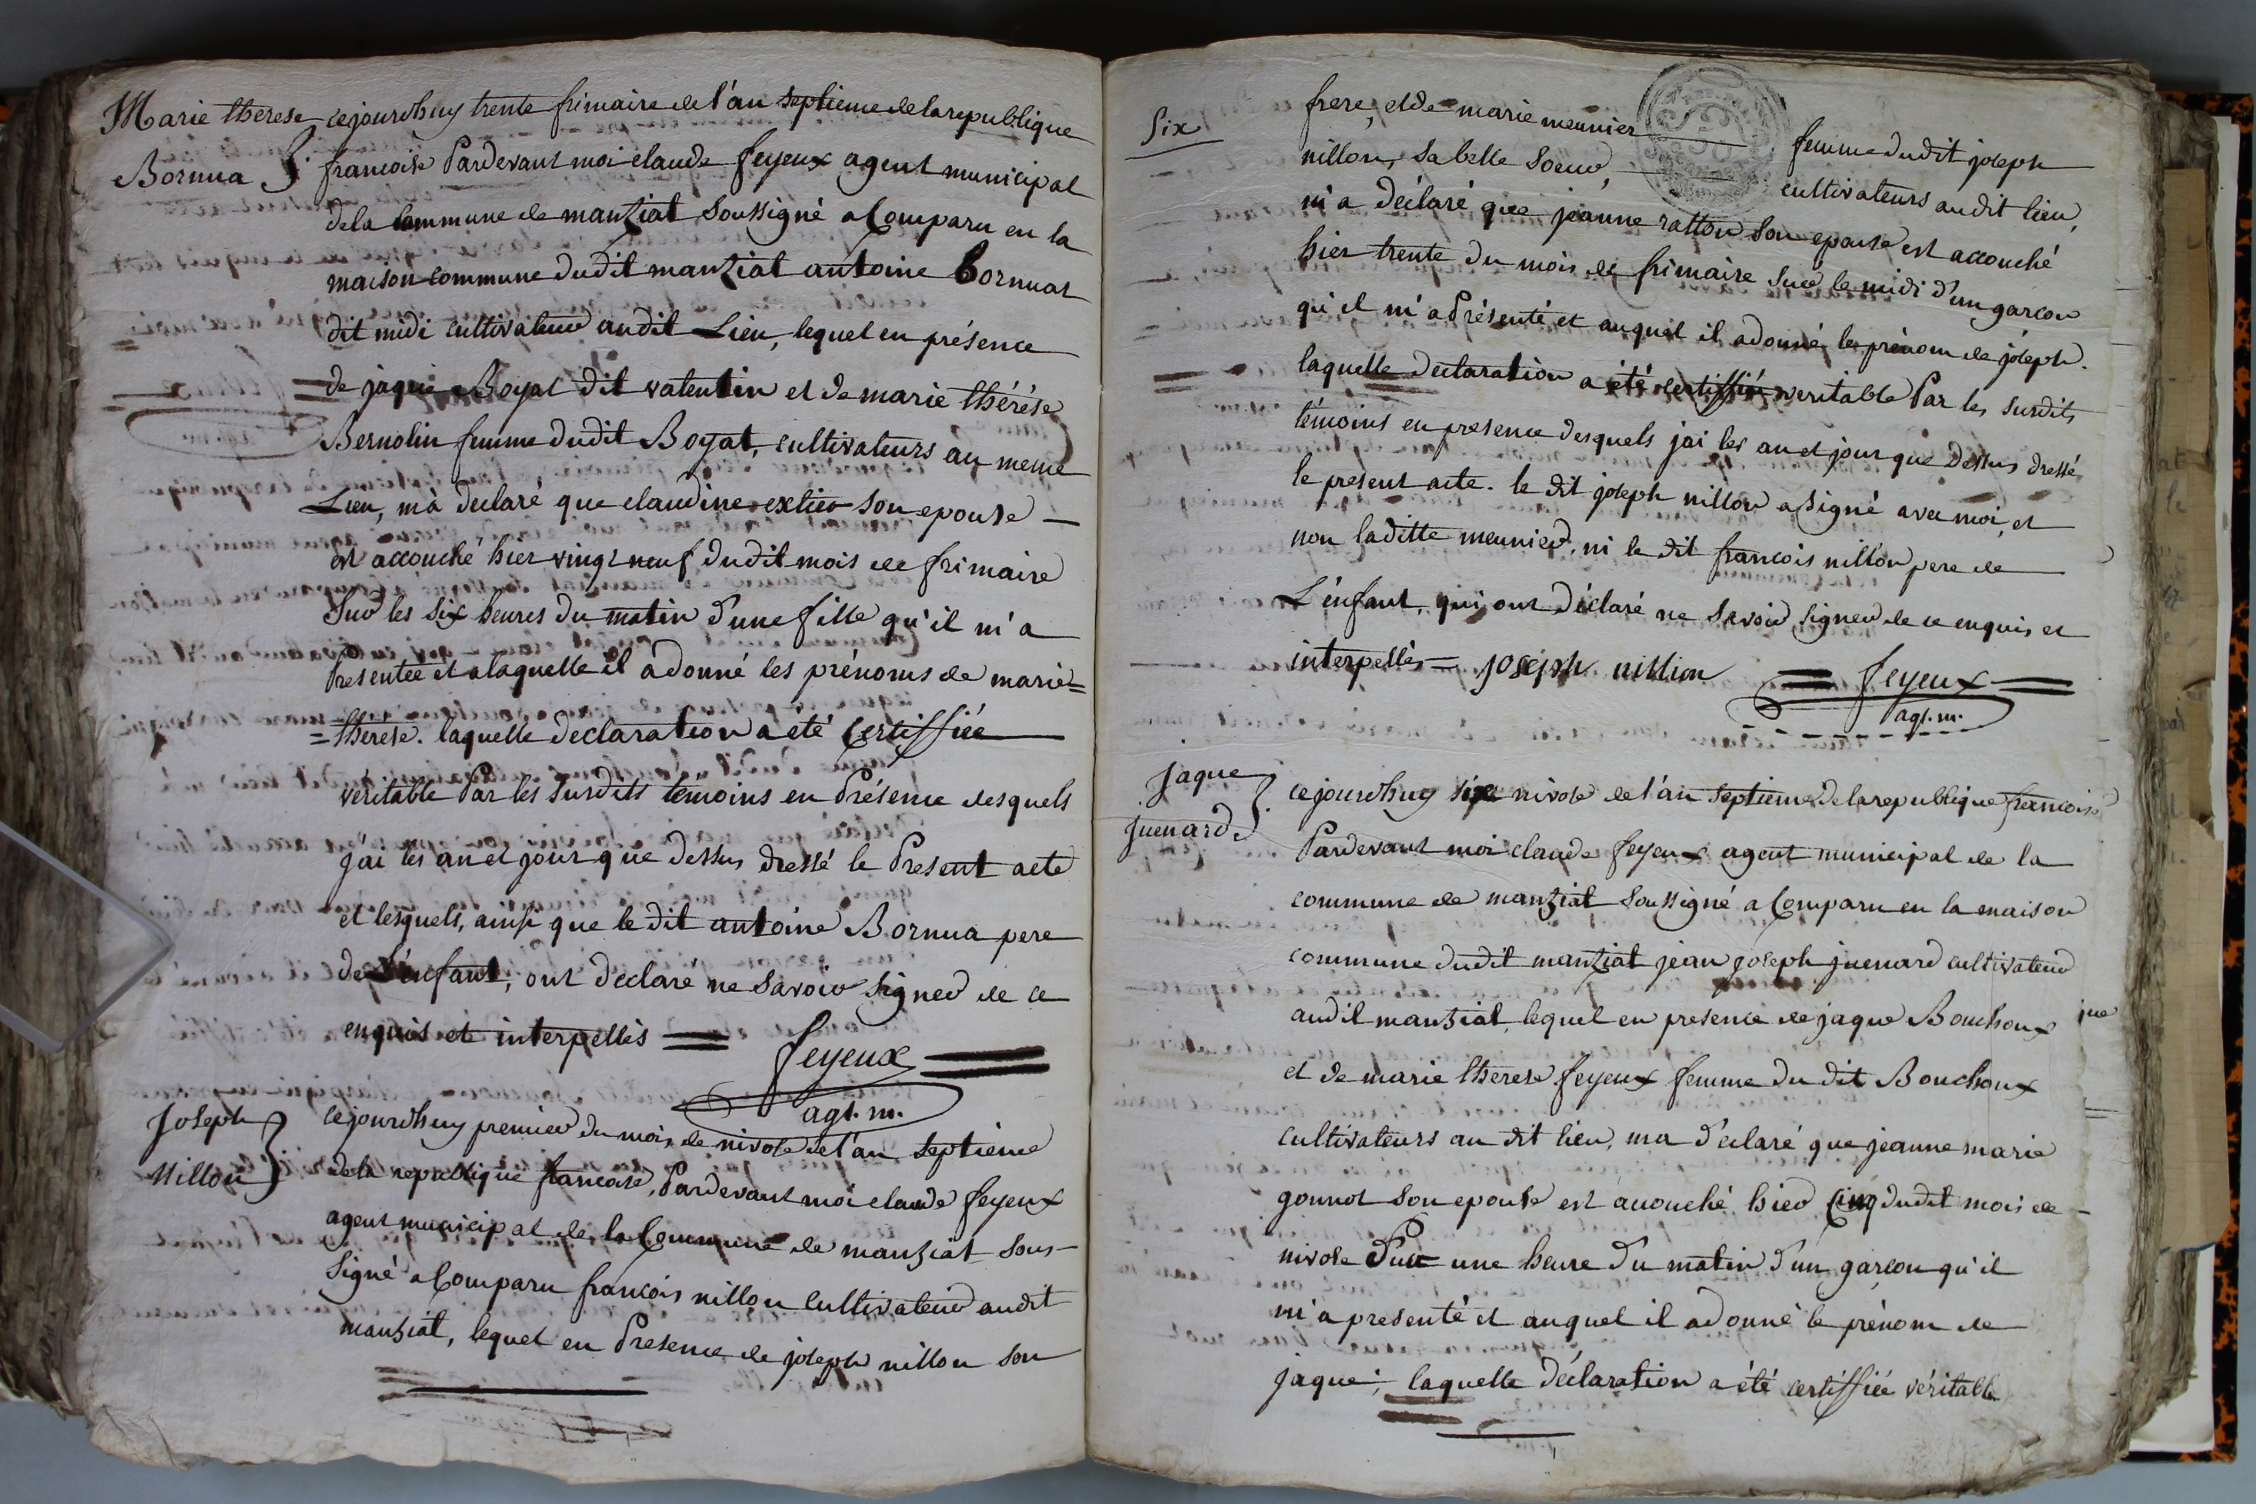 Marie therese
Bornua
cejourdhuy trente frimaire de l'an septieme de la republique
francoise Pardevant moi claude feyeux agent municipal
de la Commune de manziat soussigné a Comparu en la
maison commune dudit manziat antoine Bornuat
dit midi cultivateur audit Lieu, lequel en présence
de jaque Boyat dit valentin et de marie thérése
Bernolin femme dudit Boyat, cultivateurs au meme
Lieu, m'a declaré que claudine extier son epouse
est accouché hier vingt neuf dudit mois de frimaire
Sur les six heures du matin d'une fille qu'il m'a
Presentée et a laquelle il a donné les prénoms de marie=
=therese. laquelle declaration a été Certiffiée
véritable Par les Surdits témoins en Présence desquels
j'ai les an et jour que dessus dressé le Present acte
et lesquels, ainsi que le dit antoine Bornua pere
de L'enfant, ont declaré ne savoir signer de ce
enquis et interpellés = feyeux
agt. m.
Joseph
Nillon
cejourdhuy premier du mois de nivose de l'an septieme
de la republique francoise, Pardevant moi claude feyeux
agent municipal de la Commune de manziat sous-
signé a Comparu francois nillon Cultivateur audit
manziat, lequel en Presence de joseph nillon son
Six
frere, et de marie meunier femme dudit joseph
nillon, sa belle soeur, cultivateurs audit lieu,
m'a déclaré que jeanne ratton son epouse est accouché
hier trente du mois de frimaire sur le midi d'un garcon
qu'il m'a Présenté et auquel il a donné le prénom de joseph.
laquelle declaration a été certiffiée veritable Par les surdits
témoins en presence desquels j'ai les an et jour que dessus dressé
le present acte. le dit joseph nillon a signé avec moi, et
non laditte meunier, ni le dit francois nillon pere de
L'énfant, qui ont déclaré ne savoir signer de ce enquis et
interpellés = joseph nillion = feyeux =
agt. m.
jaque
juenard
cejourdhuy six nivose de l'an septieme de la republique francoise
Pardevant moi claude feyeux agent municipal de la
commune de manziat soussigné a Comparu en la maison
commune dudit manziat jean joseph juenard cultivateur
audit manziat, lequel en presence de jaque Bouchoux
et de marie therese feyeux femme du dit Bouchoux
cultivateurs au dit lieu, m'a déclaré que jeanne marie
gonnot son epouse est accouché hier Cinq dudit mois de
nivose sur une heure du matin d'un garcon qu'il
m'a presenté et auquel il a donné le prénom de
jaque; laquelle déclaration a été certiffiée véritable